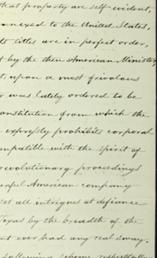 that property are self-evident,
annexed to the United States,
its titles are in perfect order,
t by the then American Minister
t, upon a most frivolous
r was lately ordered to be
onstitution from which the
expressly prohibits corporal
mpatible with the spirit of
evolutionary proceedings
American company
set all intrigues at defiance
Texas by the breadth of the
not ever had any real sway.
following scheme respectfully